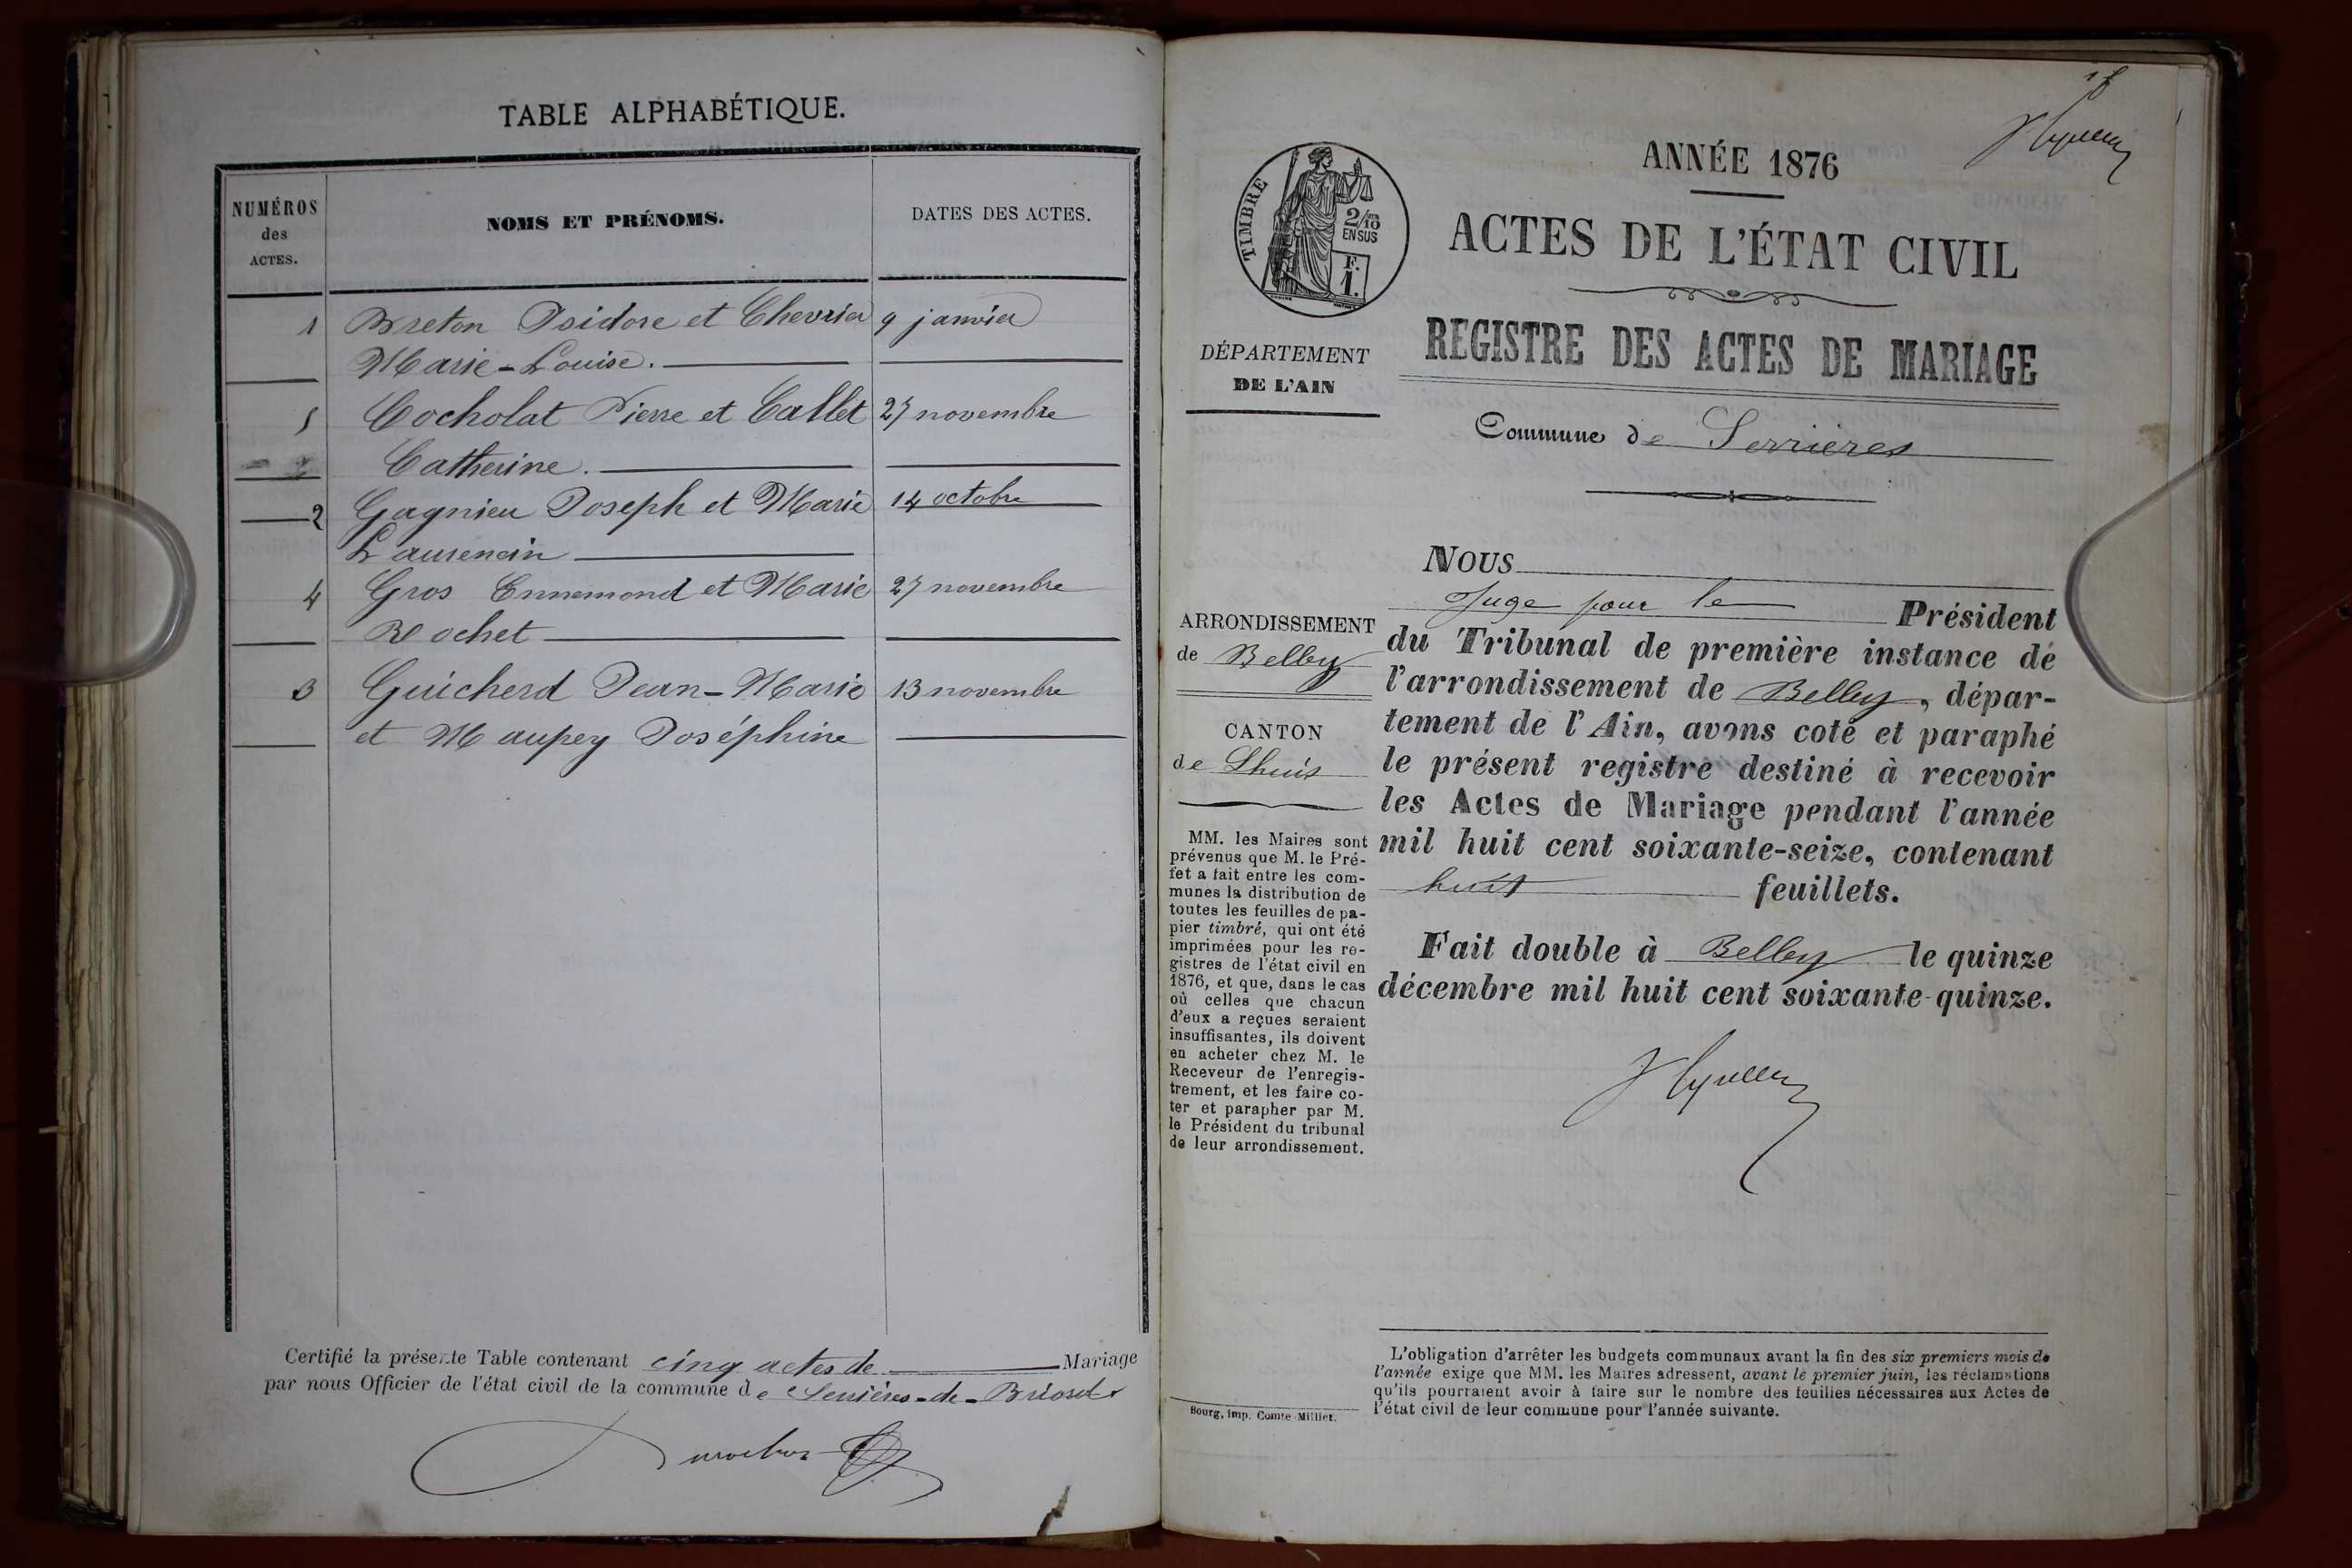 TABLE ALPHABÉTIQUE.
NUMÉROS
des
ACTES.
NOMS ET PRÉNOMS.
DATES DES ACTES.
1 Breton Isidore et Chevrier 9 janvier
Marie-Louise.
5 Cocholat Pierre et Callet 27 novembre
Catherine.
2 Gagnieu Joseph et Marie 14 octobre
Laurencin
4 Gros Ennemond et Marie 27 novembre
Rochet
3 Guicherd Jean-Marie 13 novembre
et Maupey Joséphine
Certifié la présente Table contenant cinq actes de Mariage
par nous Officier de l'état civil de la commune de Serrières-de-Briord
18
ANNÉE 1876
TIMBRE
2/10
EN SUS
F.
1.
ACTES DE L'ÉTAT CIVIL
REGISTRE DES ACTES DE MARIAGE
DÉPARTEMENT
DE L'AIN
Commune de Serrières
ARRONDISSEMENT
de Belley
CANTON
de Lhuis
MM. les Maires sont
prévenus que M. le Pré-
fet a fait entre les com-
munes la distribution de
toutes les feuilles de pa-
pier timbré, qui ont été
imprimées pour les re-
gistres de l'état civil en
1876, et que, dans le cas
où celles que chacun
d'eux a reçues seraient
insuffisantes, ils doivent
en acheter chez M. le
Receveur de l'enregis-
trement, et les faire co-
ter et parapher par M.
le Président du tribunal
de leur arrondissement.
NOUS
Juge pour le Président
du Tribunal de première instance de
l'arrondissement de Belley, dépar-
tement de l'Ain, avons coté et paraphé
le présent registre destiné à recevoir
les Actes de Mariage pendant l'année
mil huit cent soixante-seize, contenant
huit feuillets.
Fait double à Belley le quinze
décembre mil huit cent soixante-quinze.
L'obligation d'arrêter les budgets communaux avant la fin des six premiers mois de
l'année exige que MM. les Maires adressent, avant le premier juin, les réclamations
qu'ils pourraient avoir à faire sur le nombre des feuilles nécessaires aux Actes de
l'état civil de leur commune pour l'année suivante.
Bourg, imp. Comte-Milliet.